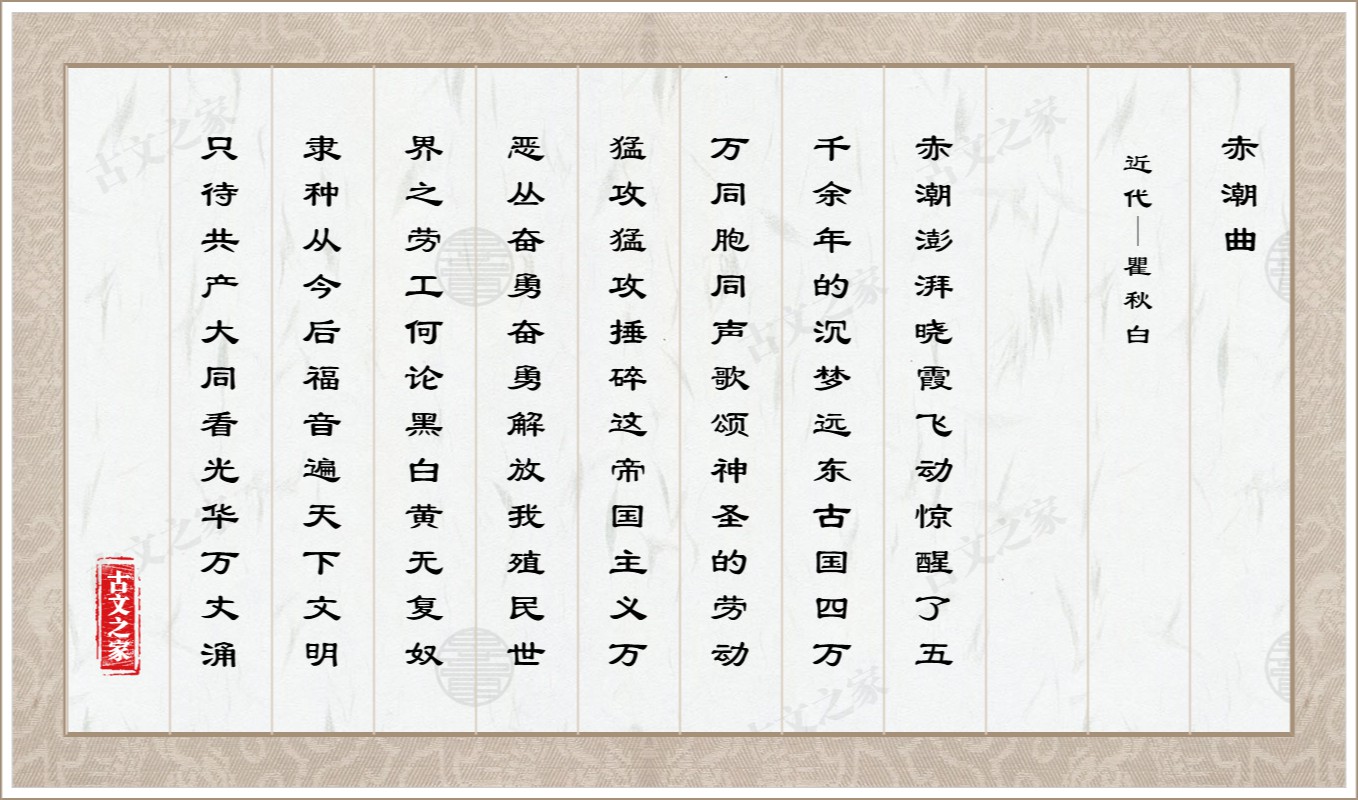 赤潮曲
近代—瞿秋白
赤潮澎湃晓霞飞动惊醒了五
千余年的沉梦远东古国四万
万同胞同声歌颂神圣的劳动
猛攻猛攻捶碎这帝国主义万
恶丛奋勇奋勇解放我殖民世
界之劳工何论黑白黄无复奴
隶种从今后福音遍天下文明
只待共产大同看光华万丈涌
古文之家
古文之家
古文之家
古文之家
古文之家
古文之家
古文之家